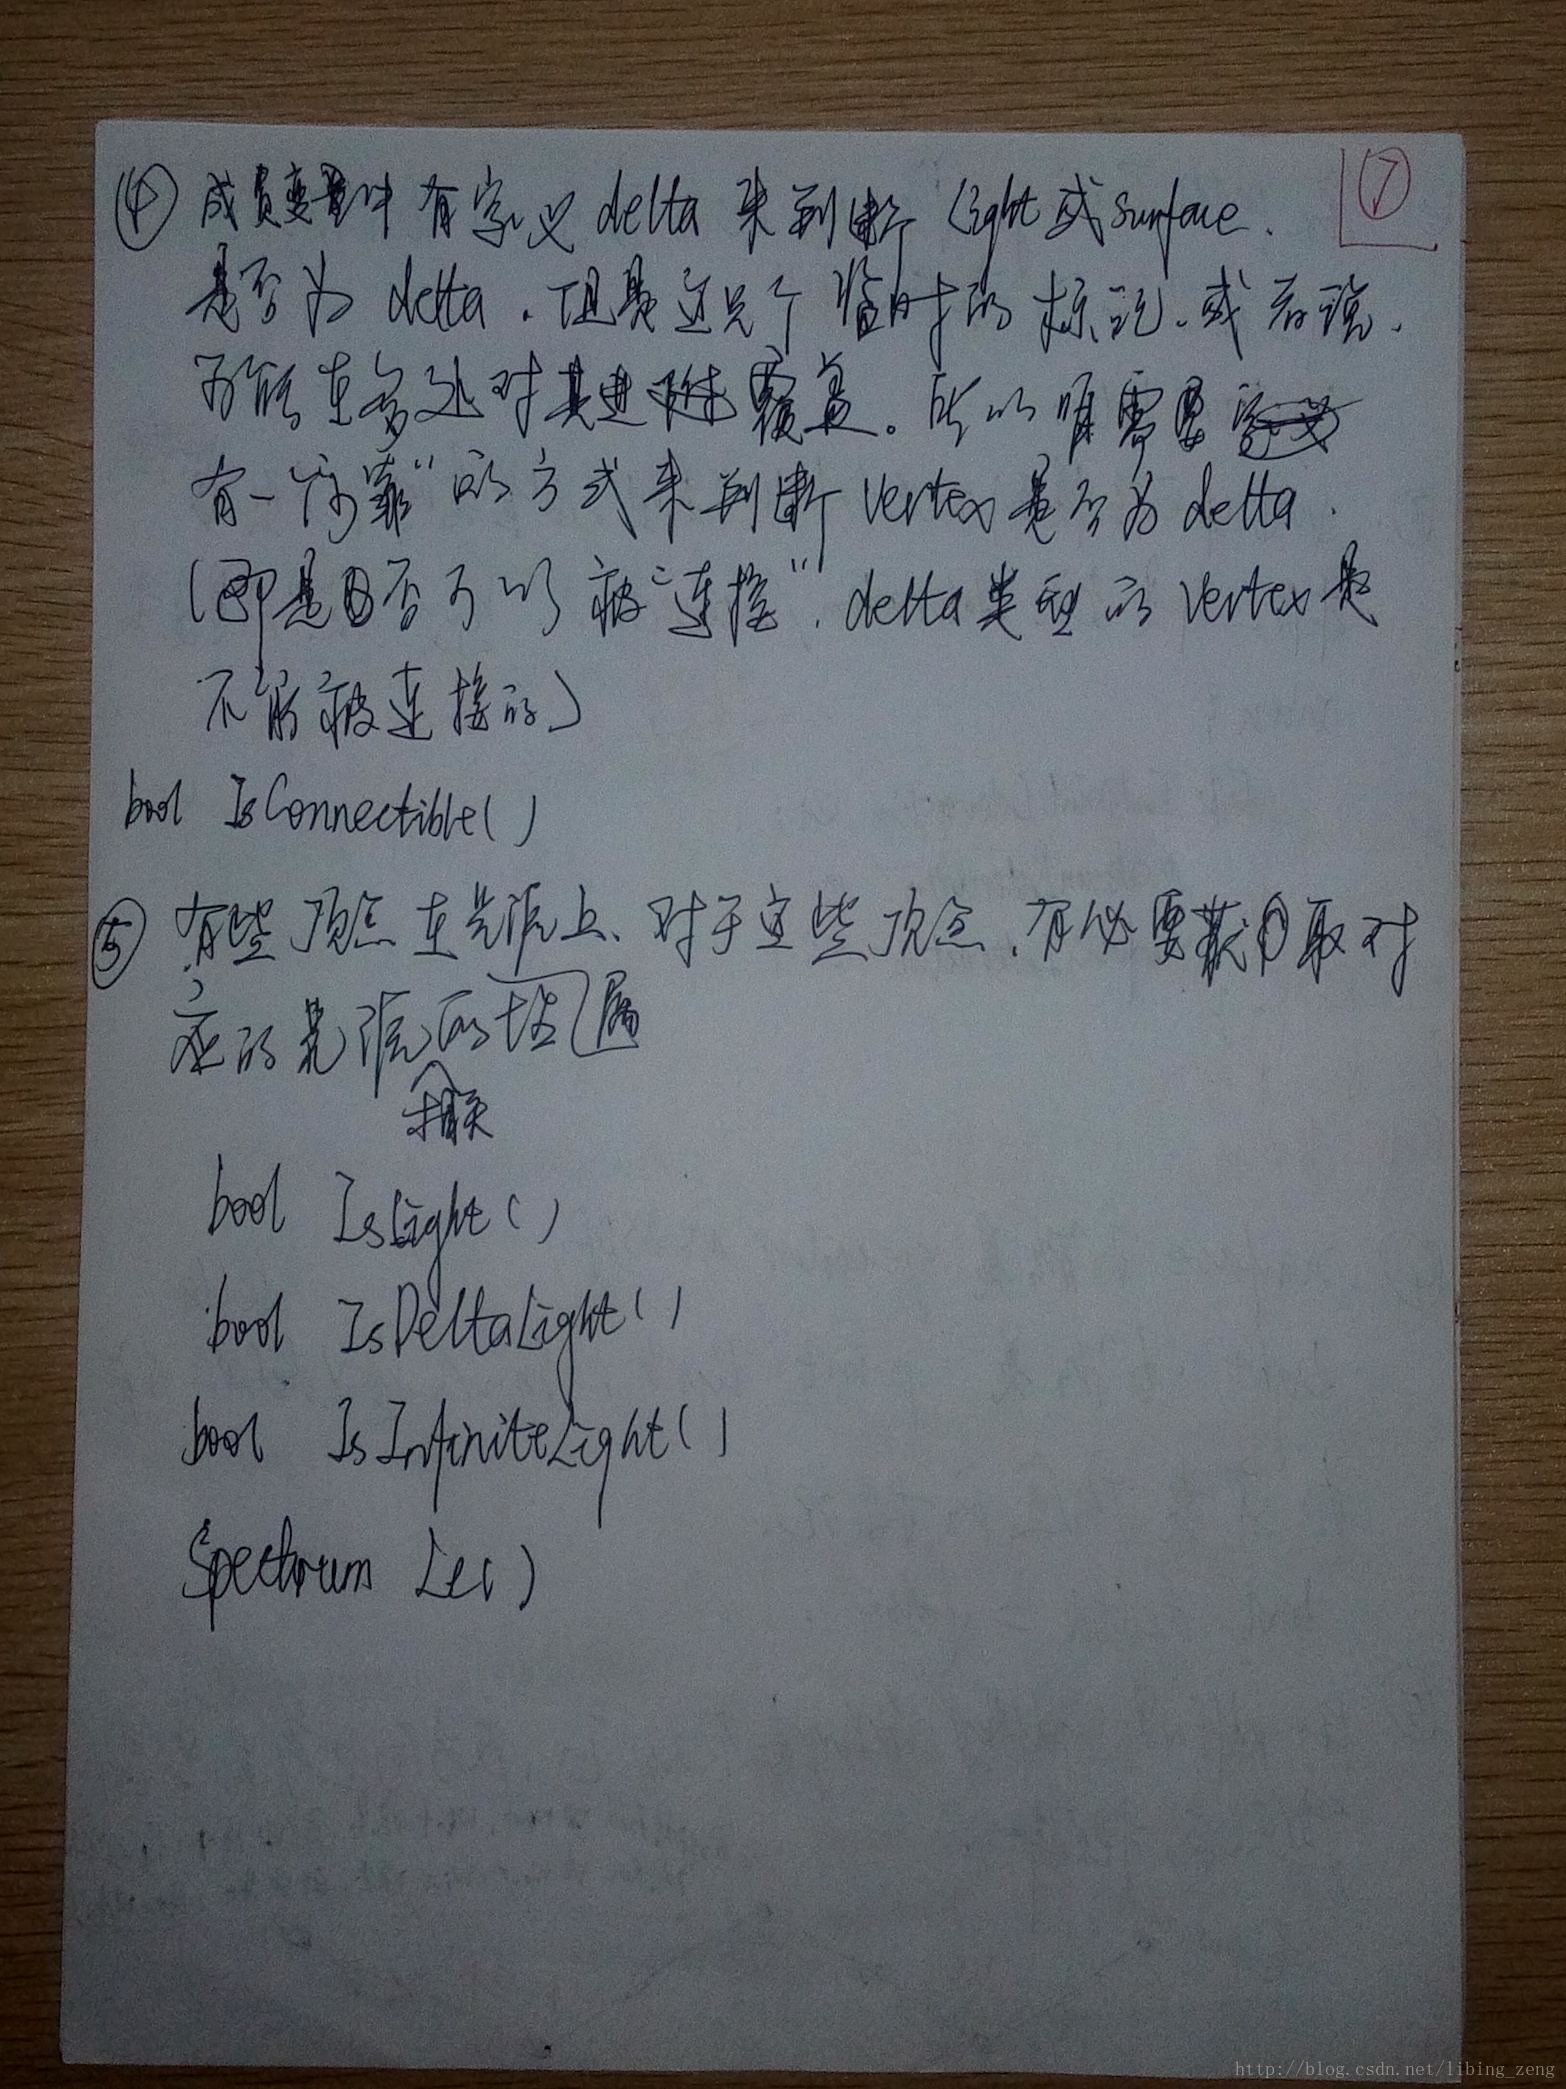 ⑦
④ 成员变量中有定义 delta 来判断 Light 或 surface.
是否为 delta. 但是这只个临时的标记. 或者说.
可能在多处对其进行 覆盖。所以 需要
有一"可靠"的方式来判断 vertex 是否为 delta.
(即是否可以被"连接". delta 类型的 vertex 是
不能被连接的)
bool IsConnectible()
⑤ 有些顶点在光源上、对于这些顶点. 有必要获取对
应的光源的 属
相关
bool IsLight()
bool IsDeltaLight()
bool IsInfiniteLight()
Spectrum Le()
http://blog.csdn.net/libing_zeng